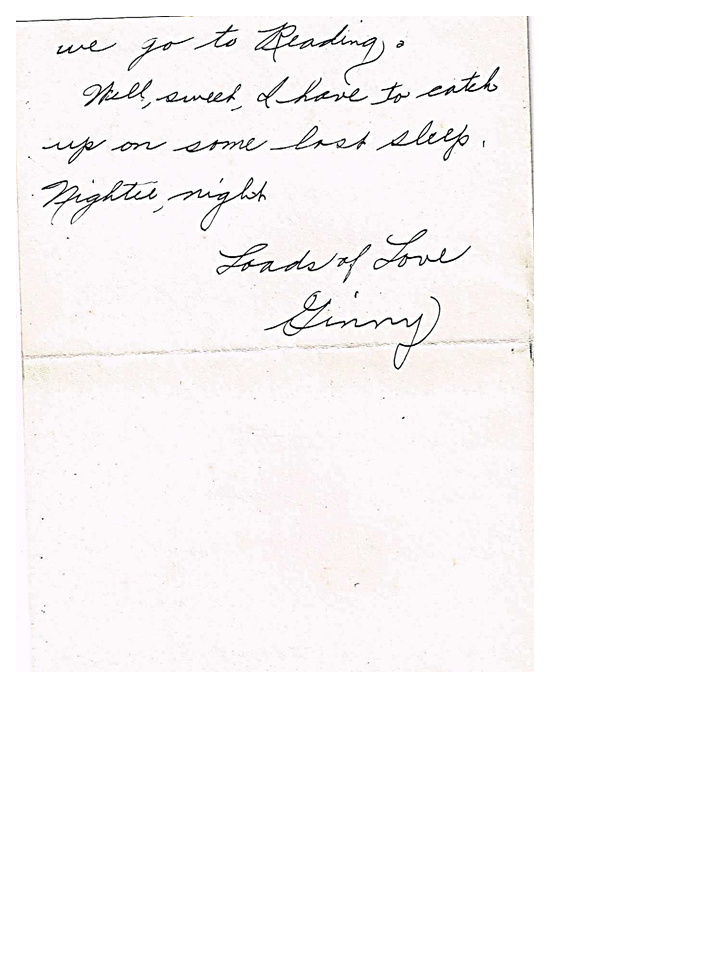 we go to Reading.
Well, sweet, I have to catch
up on some lost sleep.
Nightee, night
Loads of Love
Ginny